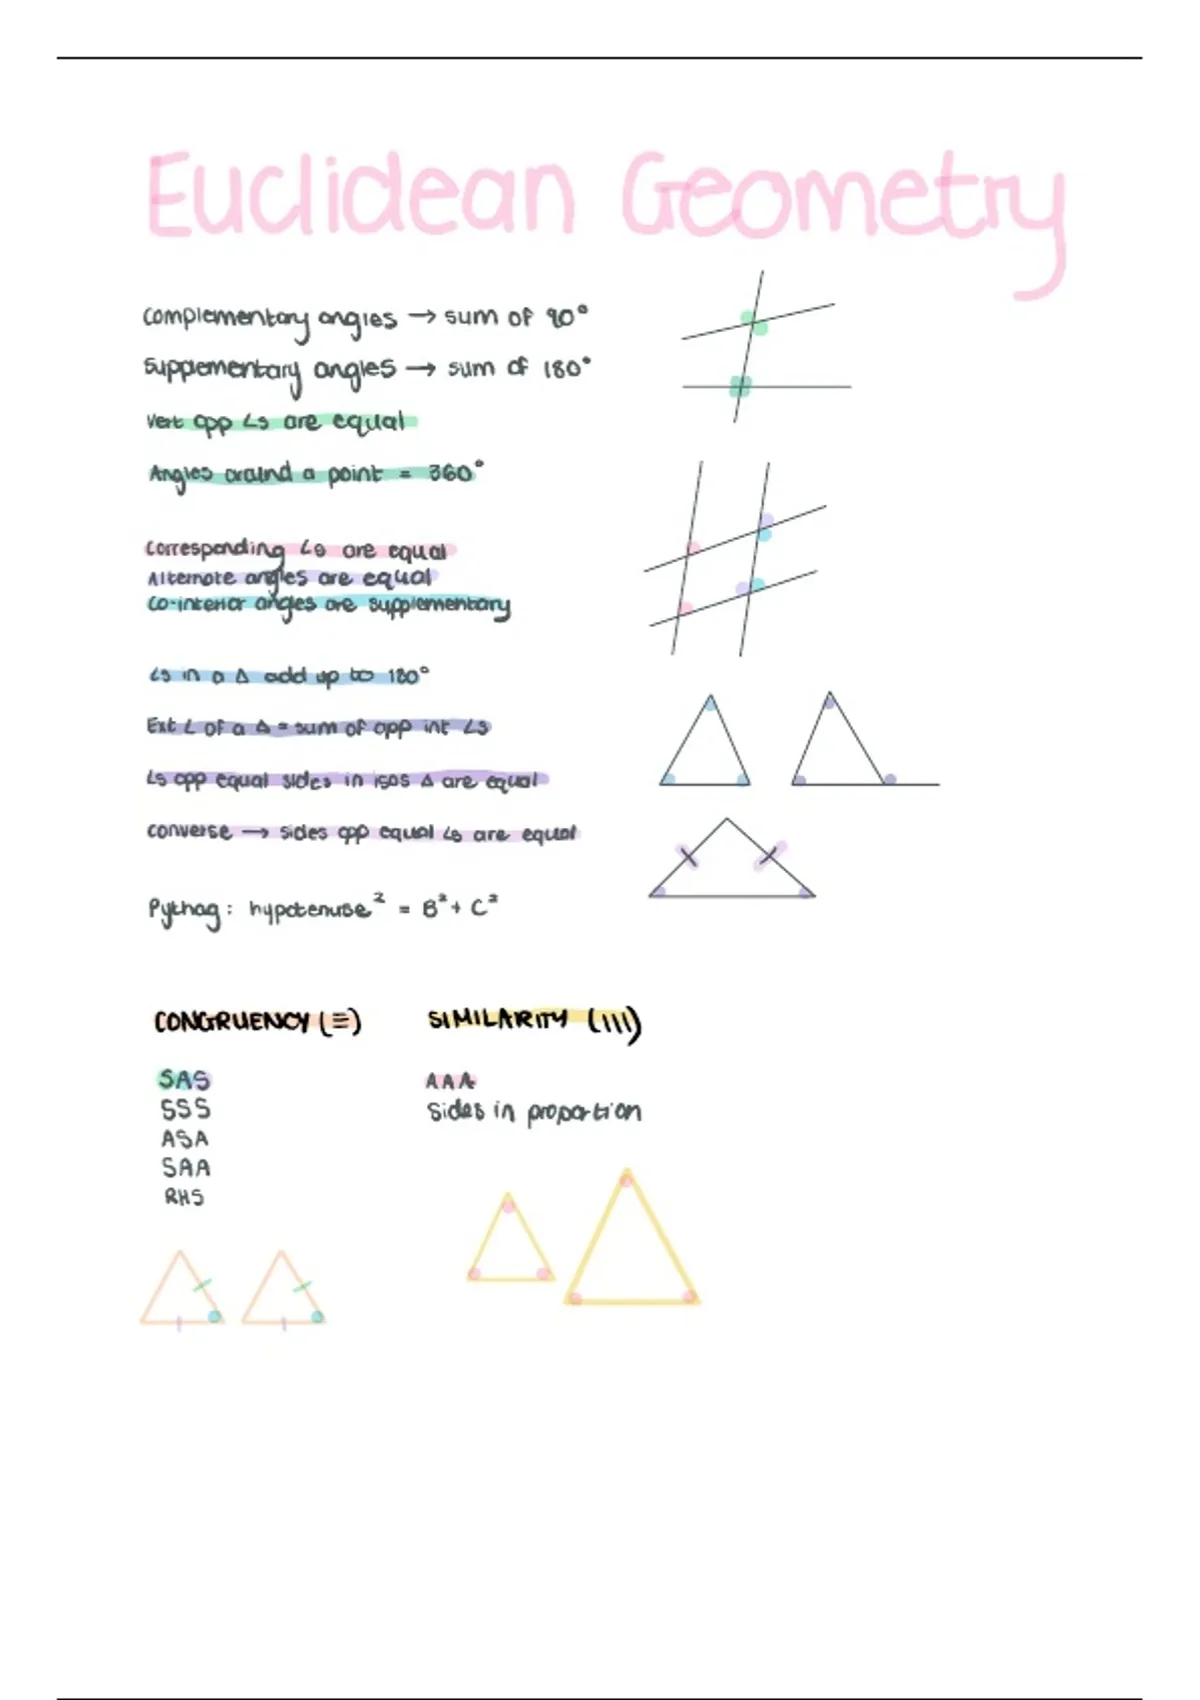 Euclidean Geometry
Complementary angles → sum of 90°
Supplementary angles → sum of 180°
Vert opp ∠s are equal
Angles around a point = 360°
Corresponding ∠s are equal
Alternate angles are equal
Co-interior angles are supplementary
∠s in a Δ add up to 180°
Ext ∠ of a Δ = sum of opp int ∠s
∠s opp equal sides in isos Δ are equal
converse → sides opp equal ∠s are equal
Pythag: hypotenuse² = B² + C²
CONGRUENCY (≡)
SAS
SSS
ASA
SAA
RHS
SIMILARITY (|||)
AAA
Sides in proportion